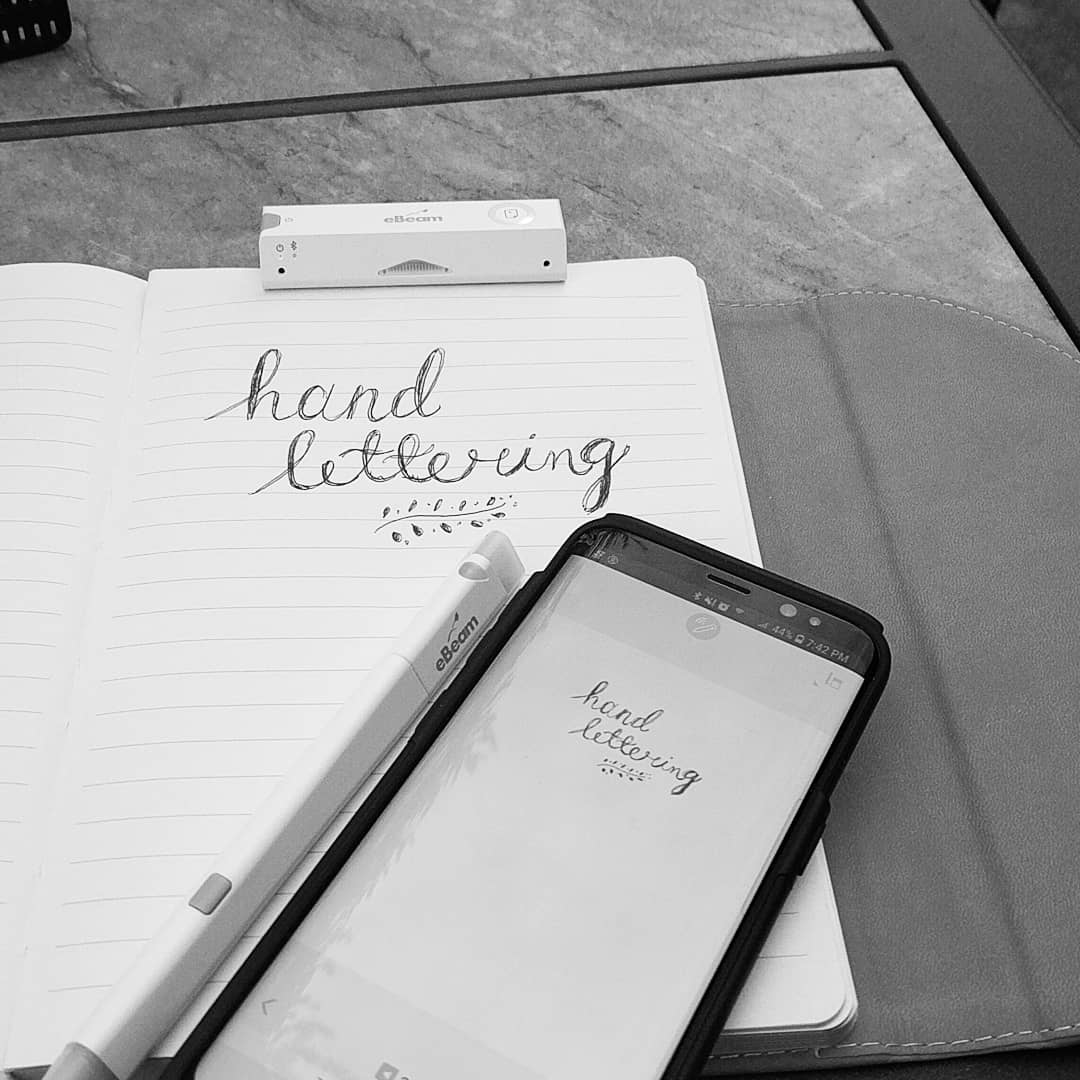 eBeam
hand
lettering
eBeam
44% 7:42 PM
hand
lettering